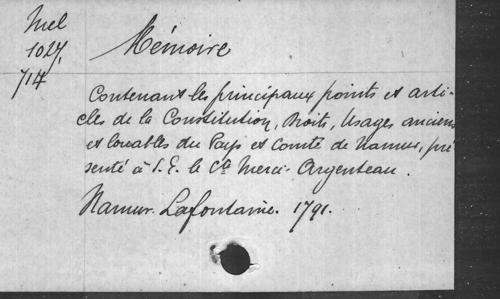 Mel
1027,
714
Mémoire
Contenant les principaux points et arti-
cles de la Constitution, Droits, Usages anciens
et louables du Pays et comté de Namur, pré
senté à S. E. le Cte Merci-Argenteau.
Namur. Lafontaine. 1791.